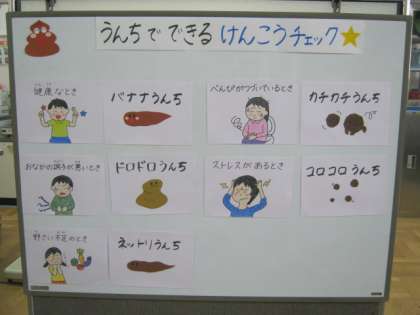 うんちで できる けんこうチェック
健康なとき
バナナうんち
べんぴがつづいているとき
カチカチうんち
おなかの調子が悪いとき
ドロドロうんち
ストレスがあるとき
コロコロうんち
野さい不足のとき
ネットリうんち